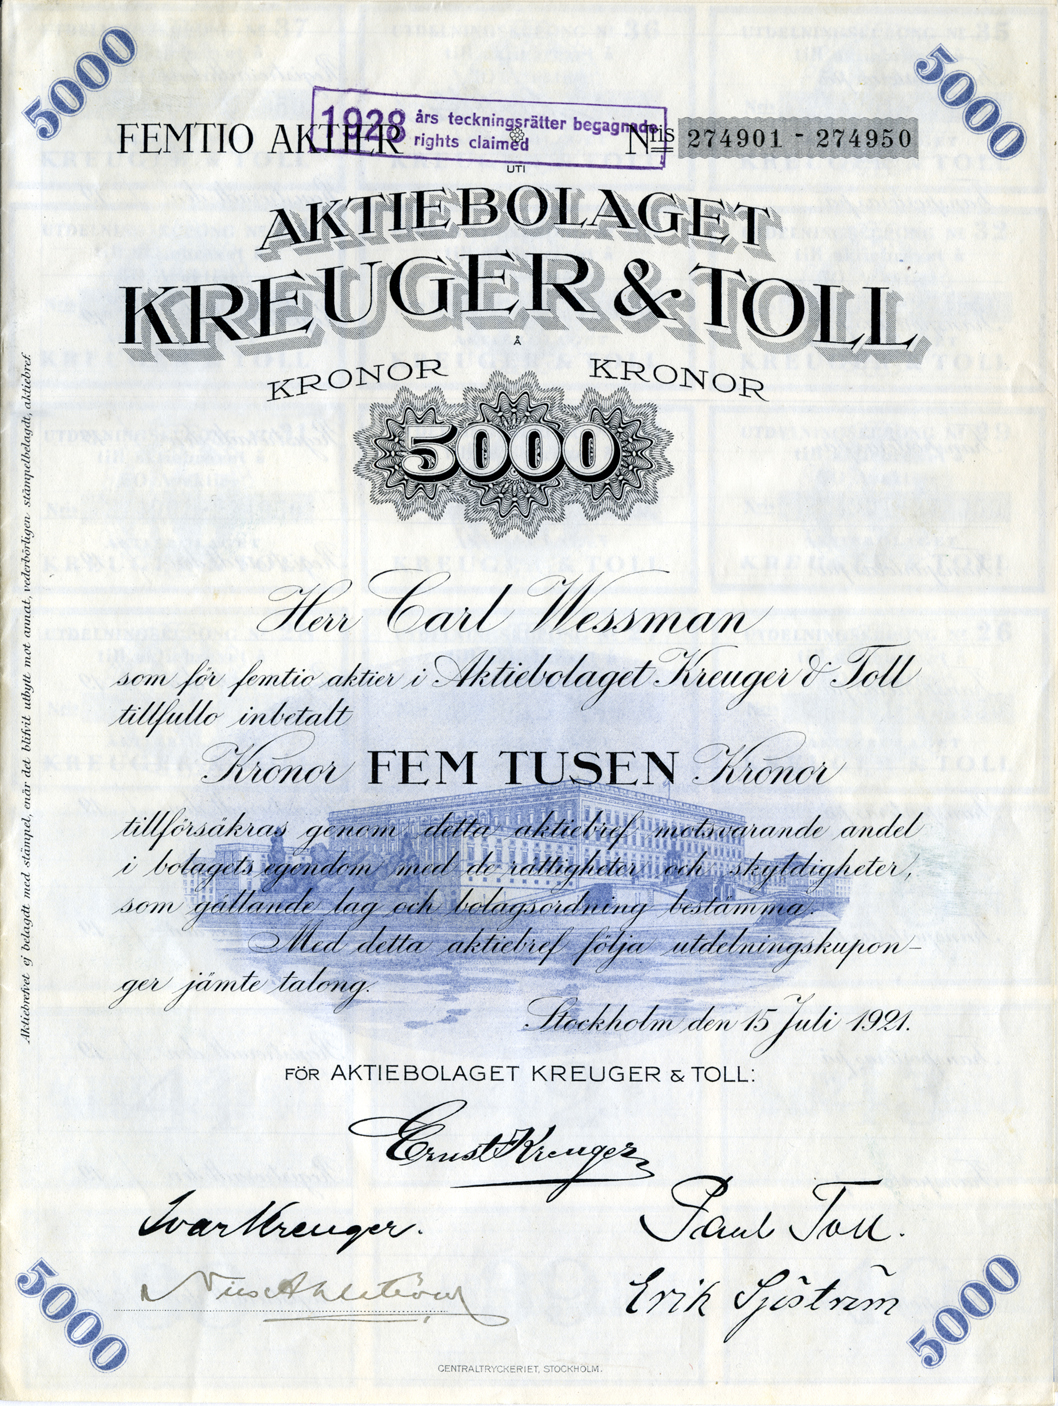 5000
5000
1928 års teckningsrätter begagnade
rights claimed
FEMTIO AKTIER
Nris 274901 - 274950
UTI
AKTIEBOLAGET
KREUGER & TOLL
Å
KRONOR KRONOR
5000
Herr Carl Wessman
som för femtio aktier i Aktiebolaget Kreuger & Toll
tillfullo inbetalt
Kronor FEM TUSEN Kronor
tillförsäkras genom detta aktiebref motsvarande andel
i bolagets egendom med de rättigheter och skyldigheter,
som gällande lag och bolagsordning bestämma.
Med detta aktiebref följa utdelningskupon-
ger jämte talong.
Stockholm den 15 Juli 1921.
FÖR AKTIEBOLAGET KREUGER & TOLL:
Ernst Kreuger
Ivar Kreuger.
Paul Toll.
Nils Ahlström
Erik Sjöström
5000
5000
CENTRALTRYCKERIET, STOCKHOLM.
Aktiebrefvet ej belagdt med stämpel, enär det blifvit utbytt mot annat, vederbörligen stämpelbelagdt, aktiebref.